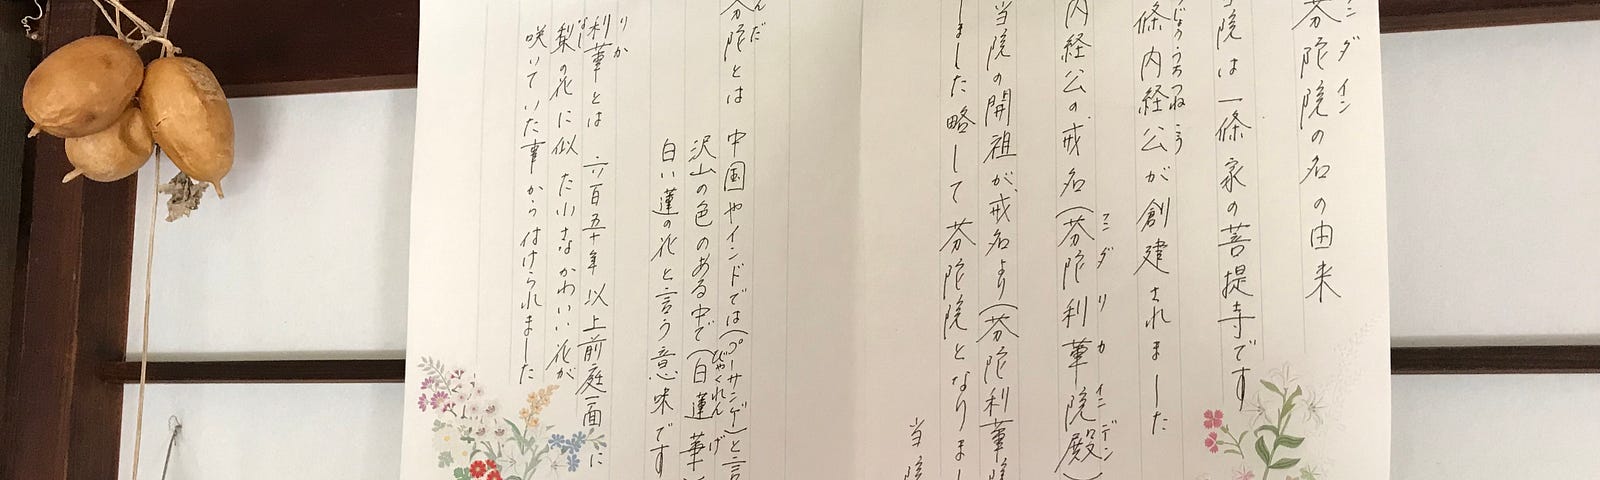 芬陀院の名の由来
院は一條家の菩提寺です
條内経公が創建されました
内経公の戒名(芬陀利華院殿)
当院の開祖が戒名より(芬陀利華院
ました略して芬陀院となりまし
当院
芬陀とは 中国やインドでは(プーサンゲ)と言
沢山の色のある中で(白蓮華)
白い蓮の花と言う意味です
利華とは 六百五十年以上前庭一面に
梨の花に似た小さなかわいい花が
咲いていた事からつけられました